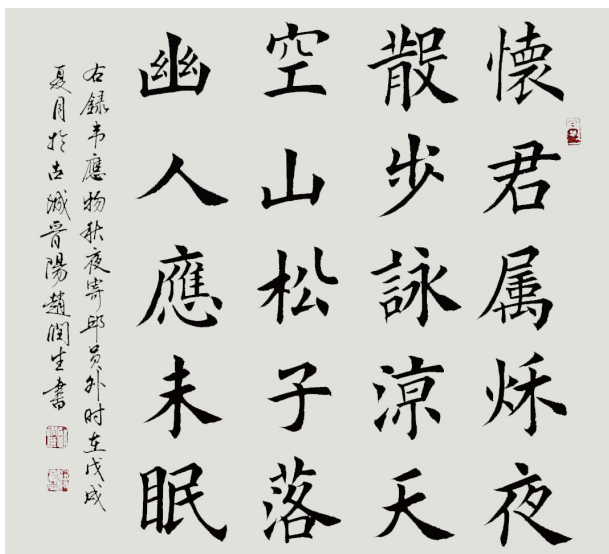 懷君属秌夜
散步詠涼天
空山松子落
幽人應未眠
右録韦應物秋夜寄邱员外时在戊戌
夏月於古城晋陽趙闰生書